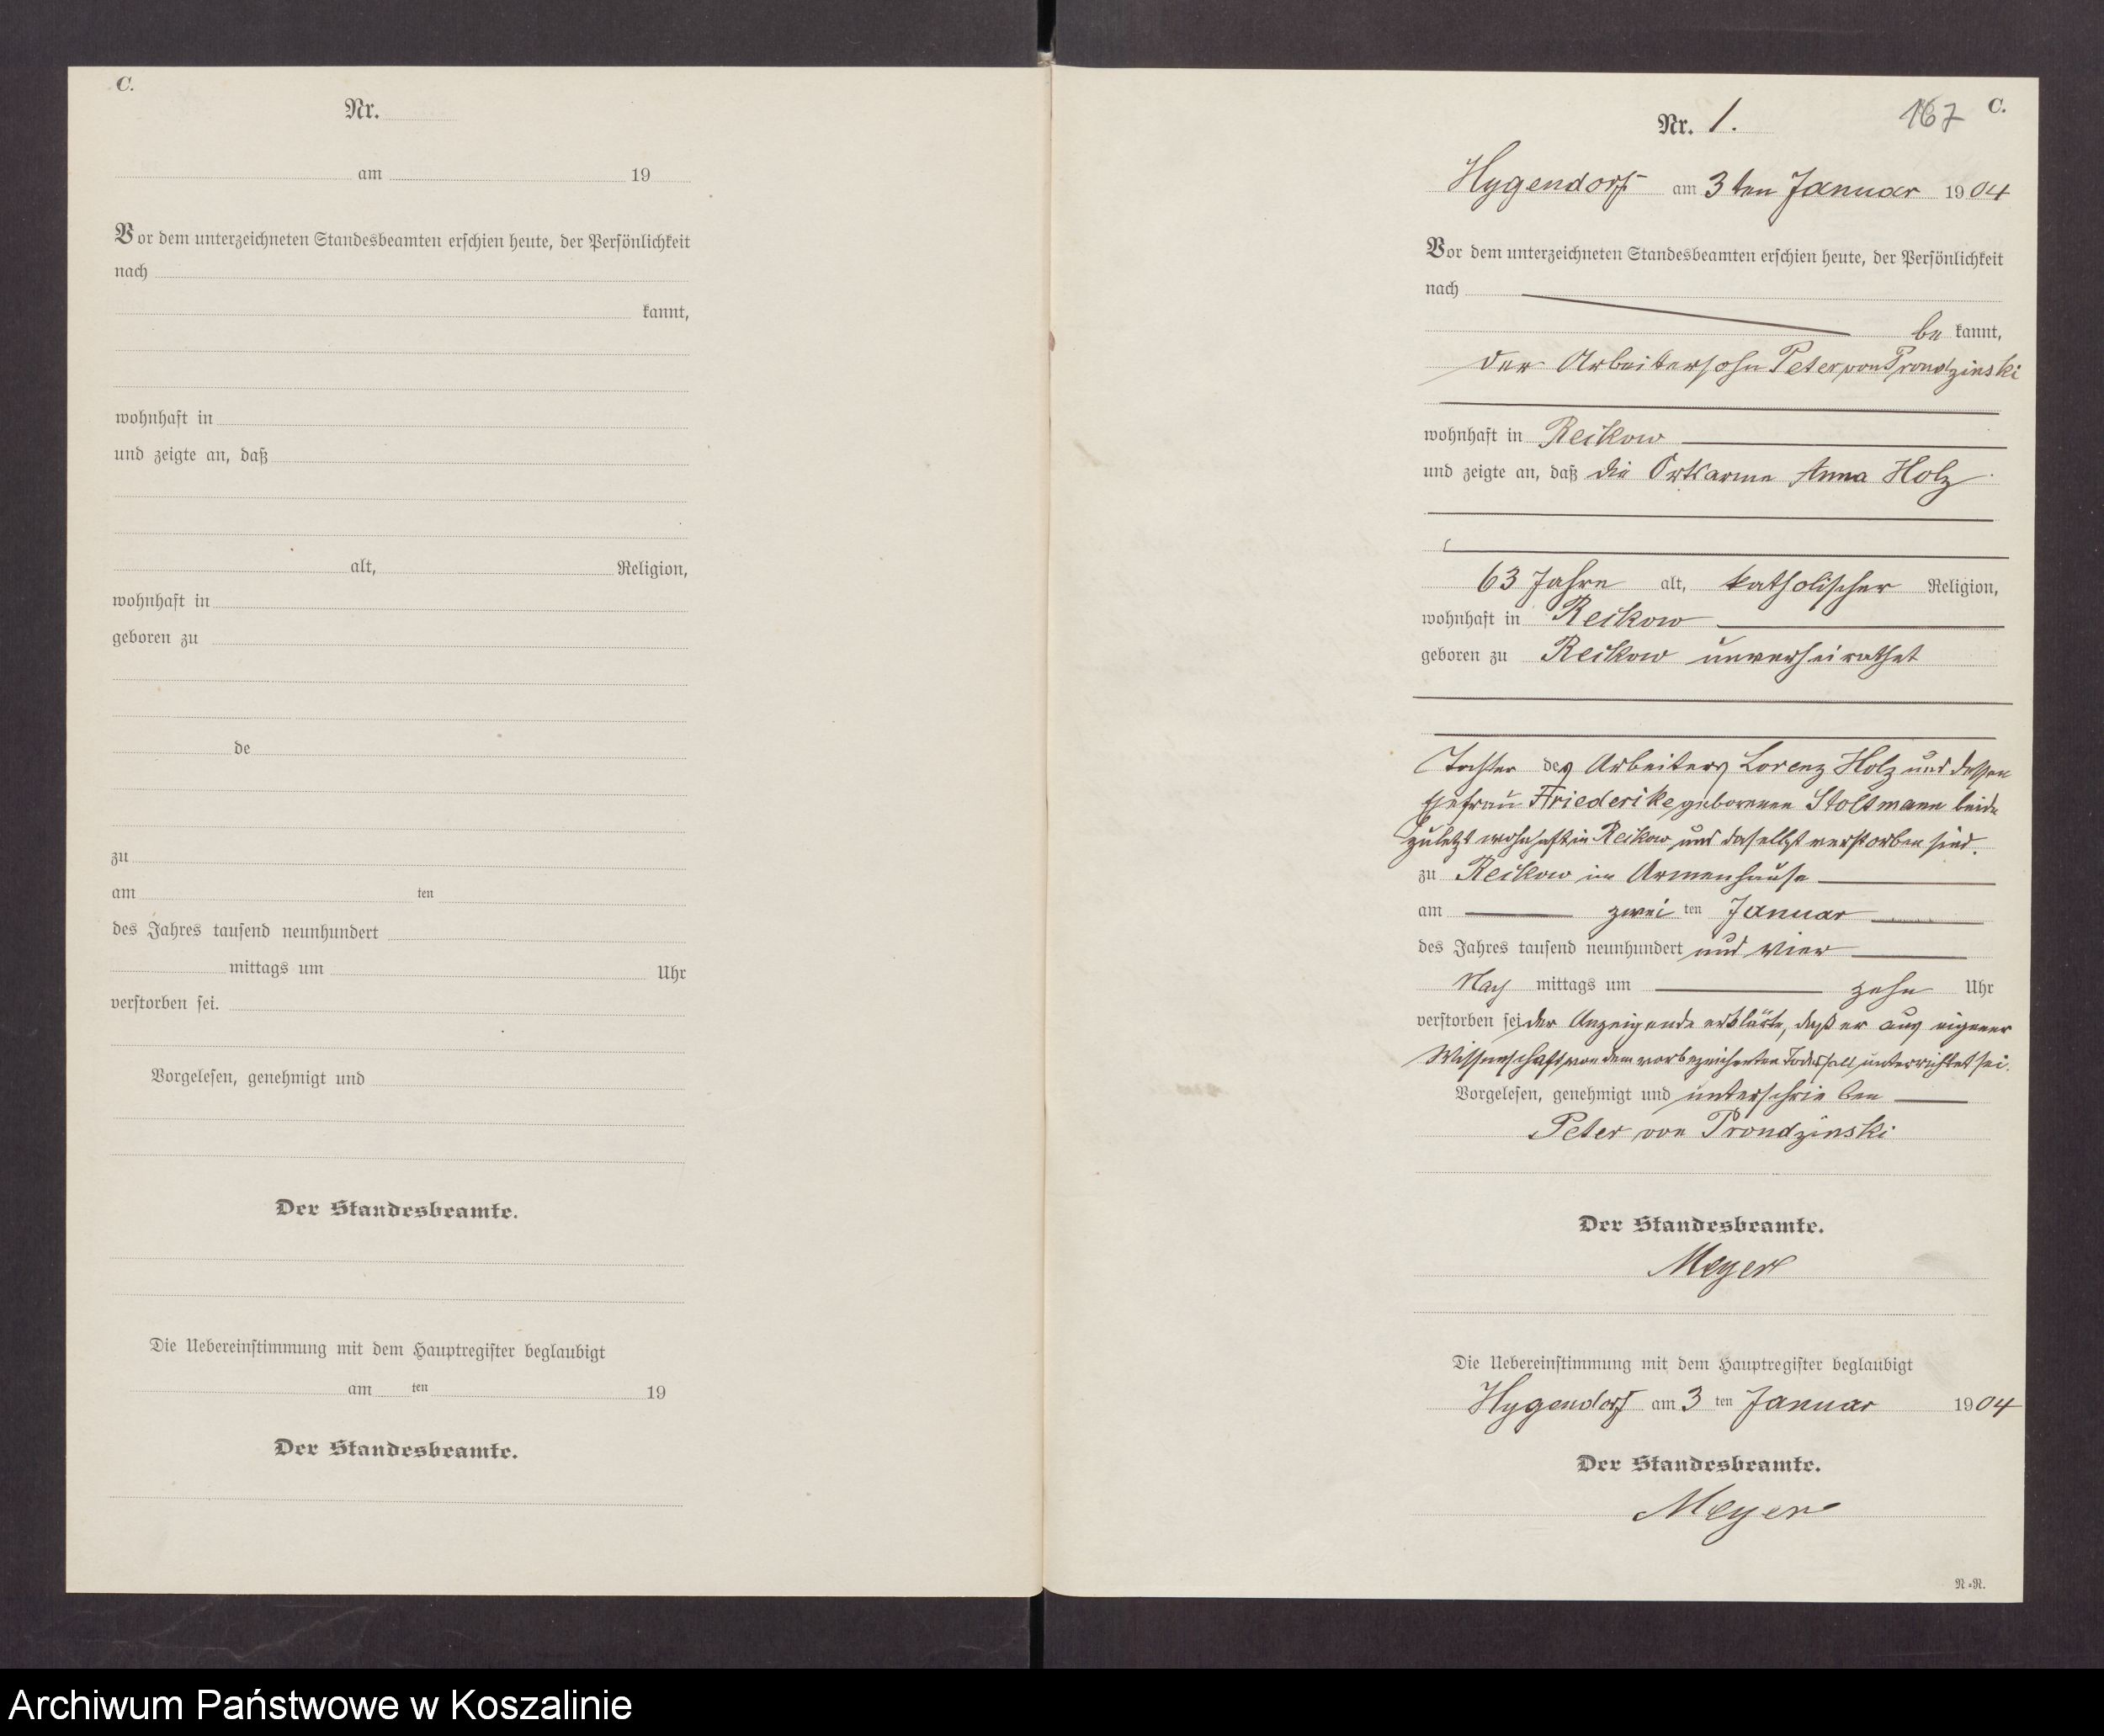 C.
Nr.
am 19
Vor dem unterzeichneten Standesbeamten erschien heute, der Persönlichkeit
nach
kannt,
wohnhaft in
und zeigte an, daß
alt, Religion,
wohnhaft in
geboren zu
de
zu
am ten
des Jahres tausend neunhundert
mittags um Uhr
verstorben sei.
Vorgelesen, genehmigt und
Der Standesbeamte.
Die Uebereinstimmung mit dem Hauptregister beglaubigt
am ten 19
Der Standesbeamte.
167 C.
Nr. 1.
Hygendorf am 3ten Januar 1904
Vor dem unterzeichneten Standesbeamten erschien heute, der Persönlichkeit
nach
bekannt,
der Arbeitersohn Peter von Prondzinski
wohnhaft in Reikow
und zeigte an, daß die Ortsarme Anna Holz
63 Jahre alt, katholischer Religion,
wohnhaft in Reikow
geboren zu Reikow unverheirathet
Tochter des Arbeiters Lorenz Holz und dessen
Ehefrau Friederike geborenen Stoltmann beide
zuletzt wohnhaft in Reikow und daselbst verstorben sind.
zu Reikow im Armenhause
am zwei ten Januar
des Jahres tausend neunhundert und vier
Nach mittags um zehn Uhr
verstorben sei der Anzeigende erklärte, daß er aus eigener
Wissenschaft von dem vorbezeichneten Todesfall unterrichtet sei.
Vorgelesen, genehmigt und unterschrieben
Peter von Prondzinski
Der Standesbeamte.
Meyer
Die Uebereinstimmung mit dem Hauptregister beglaubigt
Hygendorf am 3 ten Januar 1904
Der Standesbeamte.
Meyer
N=N.
Archiwum Państwowe w Koszalinie